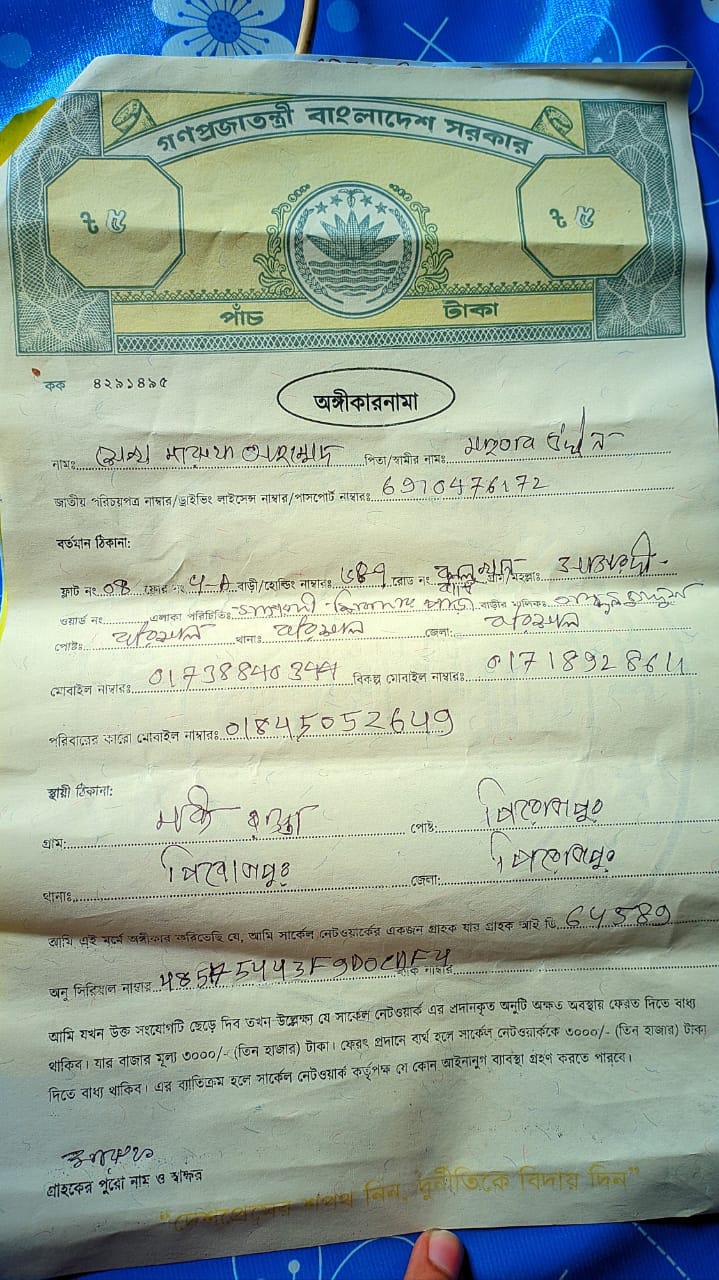 গণপ্রজাতন্ত্রী বাংলাদেশ সরকার
৳ ৫ ৳ ৫
পাঁচ টাকা
কক ৪২৯১৪৯৫
অঙ্গীকারনামা
নামঃ পিতা/স্বামীর নামঃ
জাতীয় পরিচয়পত্র নাম্বার/ড্রাইভিং লাইসেন্স নাম্বার/পাসপোর্ট নাম্বারঃ 6910476172
বর্তমান ঠিকানা:
ফ্লাট নং 08 ফ্লোর নং 4-A বাড়ী/হোল্ডিং নাম্বারঃ রোড নং গ্রাম/মহল্লাঃ
ওয়ার্ড নং এলাকা পরিচিতিঃ বাড়ীর মালিকঃ
পোষ্টঃ বরিশাল থানাঃ বরিশাল জেলা: বরিশাল
মোবাইল নাম্বারঃ 01738840344 বিকল্প মোবাইল নাম্বারঃ 01718928611
পরিবারের কারো মোবাইল নাম্বারঃ 01845052649
স্থায়ী ঠিকানা:
গ্রাম: পোষ্ট: পিরোজপুর
থানাঃ পিরোজপুর জেলা: পিরোজপুর
আমি এই মর্মে অঙ্গীকার করিতেছি যে, আমি সার্কেল নেটওয়ার্কের একজন গ্রাহক যার গ্রাহক আই ডি 64589
অনু সিরিয়াল নাম্বার
আমি যখন উক্ত সংযোগটি ছেড়ে দিব তখন উল্লেক্ষ্য যে সার্কেল নেটওয়ার্ক এর প্রদানকৃত অনুটি অক্ষত অবস্থায় ফেরত দিতে বাধ্য
থাকিব। যার বাজার মূল্য ৩০০০/- (তিন হাজার) টাকা। ফেরৎ প্রদানে ব্যর্থ হলে সার্কেল নেটওয়ার্ককে ৩০০০/- (তিন হাজার) টাকা
দিতে বাধ্য থাকিব। এর ব্যাতিক্রম হলে সার্কেল নেটওয়ার্ক কর্তৃপক্ষ যে কোন আইনানুগ ব্যাবস্থা গ্রহণ করতে পারবে।
গ্রাহকের পুরো নাম ও স্বাক্ষর
“দেশপ্রেমের শপথ নিন, দুর্নীতিকে বিদায় দিন”